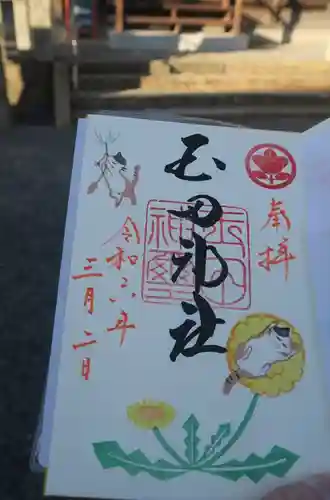 奉拝
玉田神社
玉田神璽
令和六年
三月二日